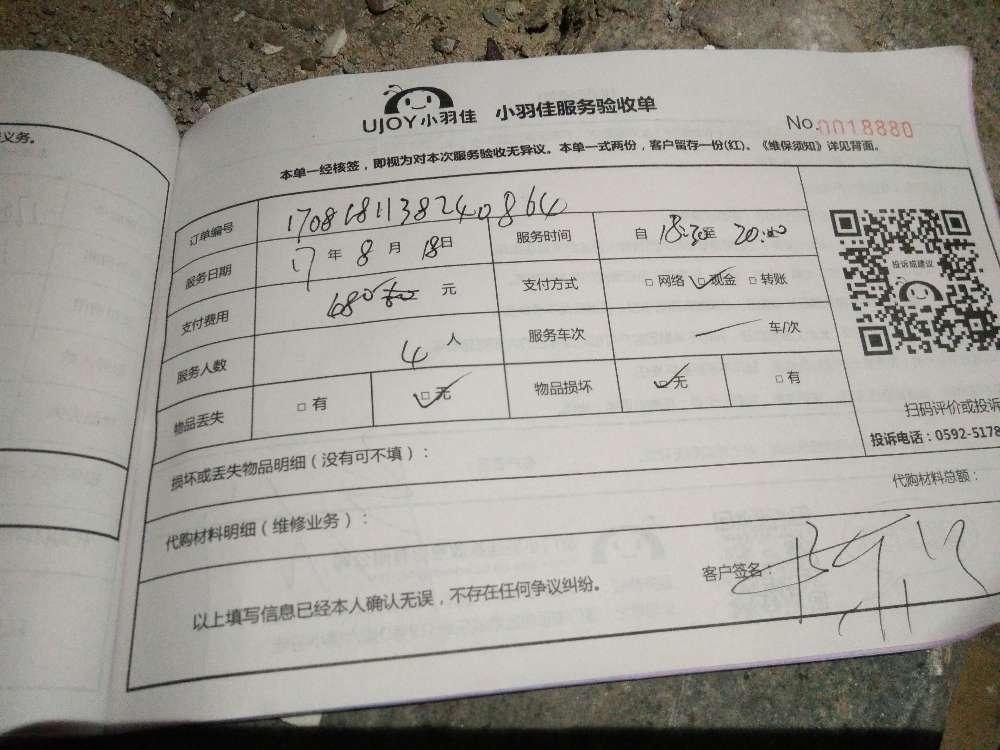 义务。
UJOY小羽佳 小羽佳服务验收单
No.0018880
本单一经核签，即视为对本次服务验收无异议。本单一式两份，客户留存一份(红)。《维保须知》详见背面。
订单编号 1708181138240864
服务日期 17年8月18日 服务时间 自 18:30至 20:00
支付费用 680 元 支付方式 □网络 ☑现金 □转账
服务人数 4人 服务车次 — 车/次
物品丢失 □有 ☑无 物品损坏 ☑无 □有
投诉或建议
扫码评价或投诉
投诉电话：0592-5178
损坏或丢失物品明细（没有可不填）：
代购材料明细（维修业务）： 代购材料总额：
以上填写信息已经本人确认无误，不存在任何争议纠纷。 客户签名：